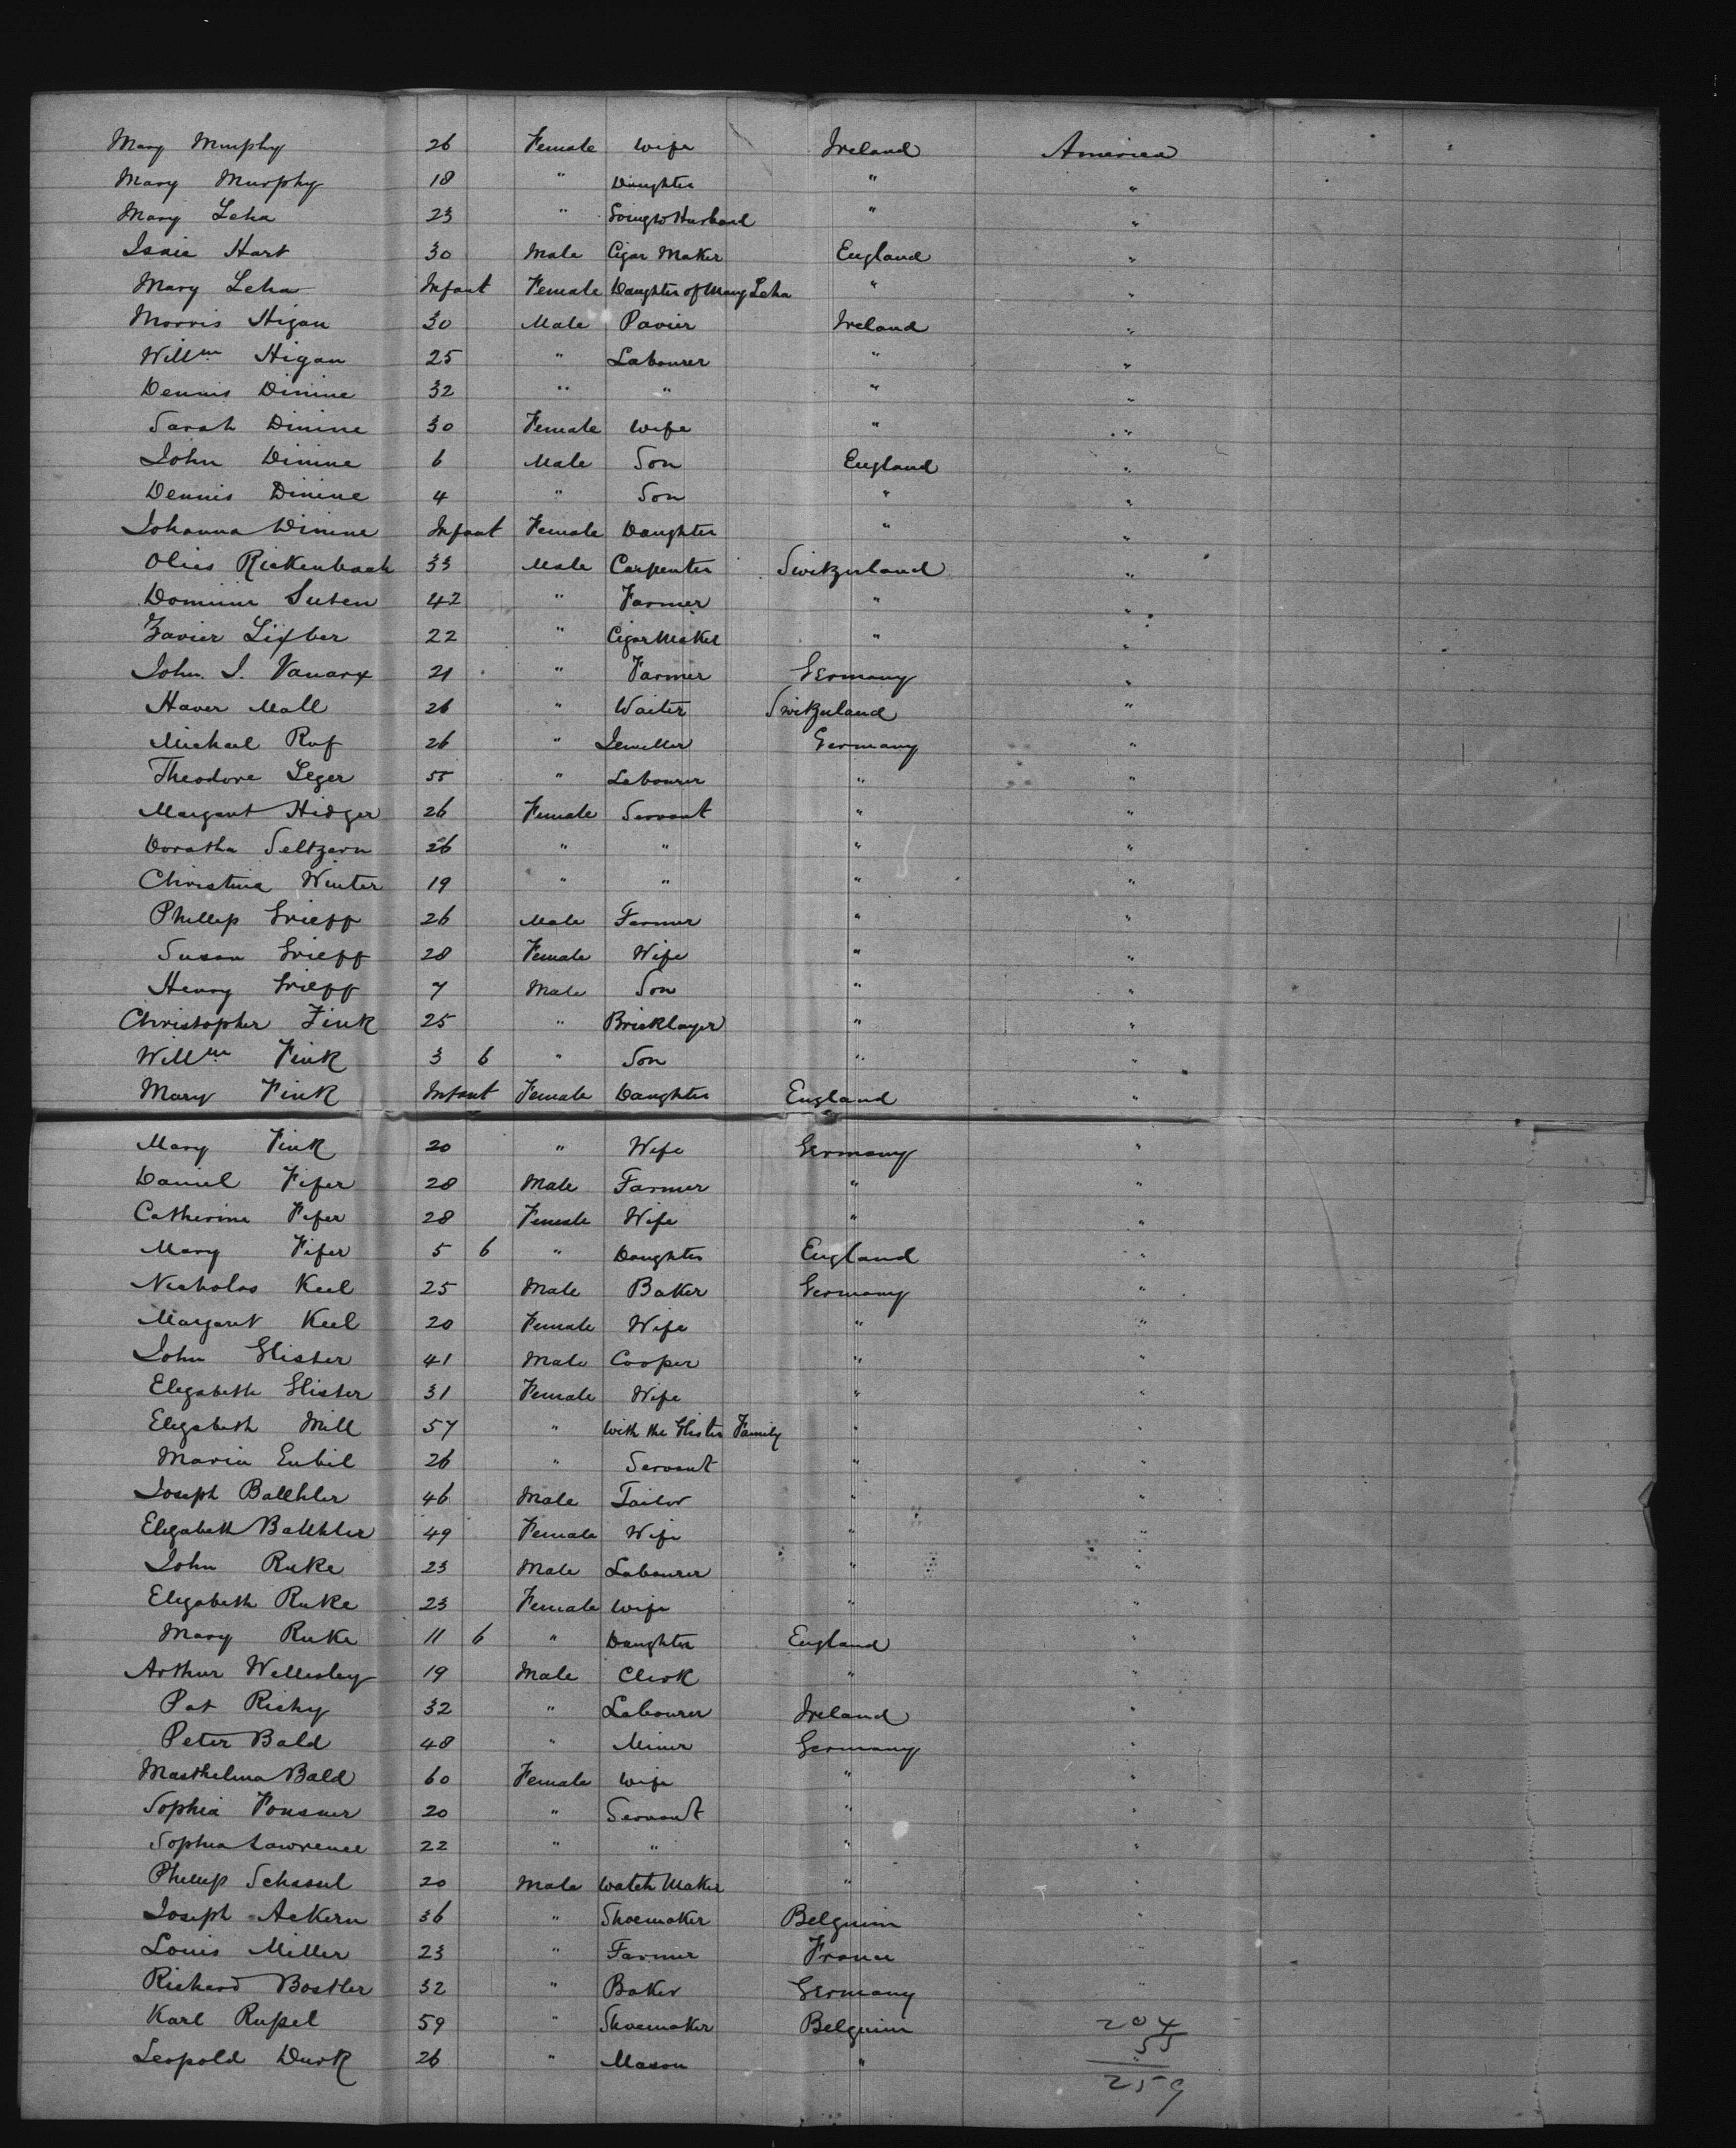 Mary Murphy 26 Female Wife Ireland America
Mary Murphy 18 " Daughter " "
Mary Leha 23 " Going to Husband " "
Isaic Hart 30 Male Cigar Maker England "
Mary Leha Infant Female Daughter of Mary Leha " "
Morris Higan 30 Male Pavier Ireland "
Willm Higan 25 " Labourer " "
Dennis Dinine 32 " " " "
Sarah Dinine 30 Female Wife " "
John Dinine 6 Male Son England "
Dennis Dinine 4 " Son " "
Johanna Dinine Infant Female Daughter " "
Olies Rickenbach 33 Male Carpenter Switzerland "
Suten 42 " Farmer " "
Zavier 22 " Cigar Maker " "
John. J. Vanarx 21 " Farmer Germany "
Haver Mall 26 " Waiter Switzerland "
Michael Ruf 26 " Jeweller Germany "
Theodore Leger 55 " Labourer " "
Margaret Hidger 26 Female Servant " "
Doratha Seltzern 26 " " " "
Christina Winter 19 " " " "
Phillip Grieff 26 Male Farmer " "
Susan Grieff 28 Female Wife " "
Henry Grieff 7 Male Son " "
Christopher Fink 25 " Bricklayer " "
Willm Fink 3 6 " Son " "
Mary Fink Infant Female Daughter England "
Mary Fink 20 " Wife Germany "
Daniel Fifer 28 Male Farmer " "
Catherine Fifer 28 Female Wife " "
Mary Fifer 5 6 " Daughter England "
Nicholas Keel 25 Male Baker Germany "
Margaret Keel 20 Female Wife " "
John Glister 41 Male Cooper " "
Elezabeth Glister 31 Female Wife " "
Elezabeth Mill 57 " With the Glister Family " "
Maria Eubil 26 " Servant " "
Joseph 46 Male Tailor " "
Elezabeth 49 Female Wife " "
John Ruke 23 Male Labourer " "
Elezabeth Ruke 23 Female Wife " "
Mary Ruke 11 6 " Daughter England "
Arthur Wellesley 19 Male Clerk " "
Pat Richy 32 " Labourer Ireland "
Peter Bald 48 " Miner Germany "
Masthelma Bald 60 Female Wife " "
Sophia 20 " Servant " "
Sophia Lawrence 22 " " " "
Phillip 20 Male Watch Maker " "
Joseph Ackern 36 " Shoemaker Belguim "
Louis Miller 23 " Farmer France "
Richard Bostler 32 " Baker Germany "
Karl Rupel 59 " Shoemaker Belguim 204
Leopold Durk 26 " Mason " " 55
259